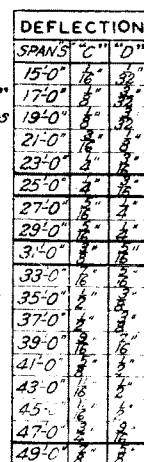 DEFLECTION
SPANS "C" "D"
15'-0" 1/16" 1/32"
17'-0" 1/8" 3/32"
19'-0" 1/8" 3/32"
21'-0" 3/16" 1/8"
23'-0" 1/4"
25'-0" 1/4" 3/16"
27'-0" 5/16" 1/4"
29'-0" 5/16" 1/4"
31'-0" 3/8" 5/16"
33'-0" 7/16" 5/16"
35'-0" 1/2" 3/8"
37'-0" 1/2" 3/8"
39'-0" 9/16" 7/16"
41'-0" 5/8" 1/2"
43'-0" 11/16" 1/2"
45'- 1/2"
47'-0" 3/4" 9/16"
49'-0" 7/8" 5/8"